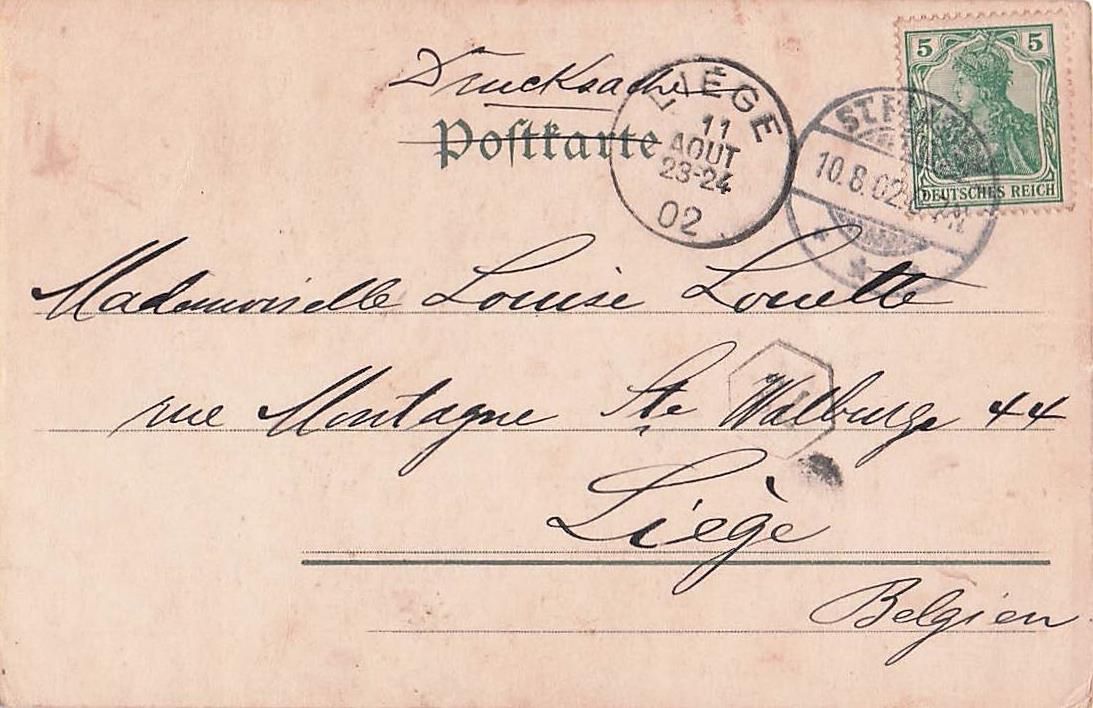 5 5
Drucksache
Postkarte
LIÉGE
11
AOUT
23-24
02
10.8.02
DEUTSCHES REICH
Mademoiselle Louise Louette
rue Montagne Ste Walburge 44
Liège
Belgien